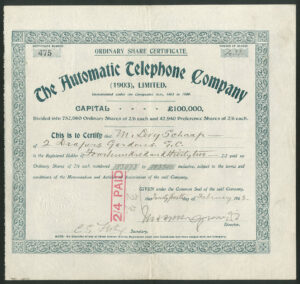 ORDINARY SHARE CERTIFICATE.
475
The Automatic Telephone Company
(1903), LIMITED.
Incorporated under the Companies Acts, 1862 to 1900.
CAPITAL £100,000,
Divided into 757,060 Ordinary Shares of 2/6 each and 42,940 Preference Shares of 2/6 each.
This is to Certify that M. Levy Schaap
of 2 Drapers Gardens E.C.
is the Registered Holder of
Ordinary Shares of 2/6 each numbered to inclusive, subject to the terms and
conditions of the Memorandum and Articles of Association of the said Company.
2/4 PAID
GIVEN under the Common Seal of the said Company,
this day of February
Director.
Secretary.